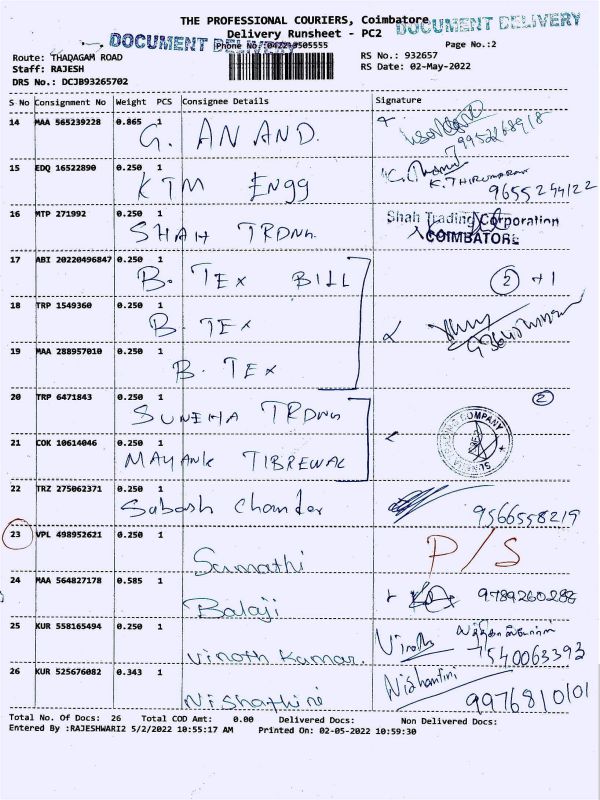 THE PROFESSIONAL COURIERS, Coimbatore
DOCUMENT DELIVERY
Delivery Runsheet - PC2
DOCUMENT DELIVERY
Phone No: 0422-3505555
Page No.:2
Route: THADAGAM ROAD
RS No.: 932657
Staff: RAJESH
RS Date: 02-May-2022
DRS No.: DCJB93265702
S No Consignment No Weight PCS Consignee Details Signature
14 MAA 565239228 0.865 1
G. ANAND.
7995268918
15 EDQ 16522890 0.250 1
KTM Engg
K. THIRUMURAN
9655244122
16 MTP 271992 0.250 1
SHAH TRDNG.
Shah Trading Corporation
COIMBATORE
17 ABI 20220496847 0.250 1
B. TEX BILL
2 +1
18 TRP 1549360 0.250 1
B. TEX
19 MAA 288957010 0.250 1
B. TEX
20 TRP 6471843 0.250 1
SUNEHA TRDNG
2
21 COK 10614046 0.250 1
MAYANK TIBREWAL
22 TRZ 275062371 0.250 1
Subash Chander
9566558219
23 VPL 498952621 0.250 1
Sumathi
P/S
24 MAA 564827178 0.585 1
Balaji
9789260286
25 KUR 558165494 0.250 1
Vinoth Kumar.
Vinoth
7540063393
26 KUR 525676082 0.343 1
Nishathini
Nishanthini
9976810101
Total No. Of Docs: 26 Total COD Amt: 0.00 Delivered Docs: Non Delivered Docs:
Entered By :RAJESHWARI2 5/2/2022 10:55:17 AM Printed On: 02-05-2022 10:59:30